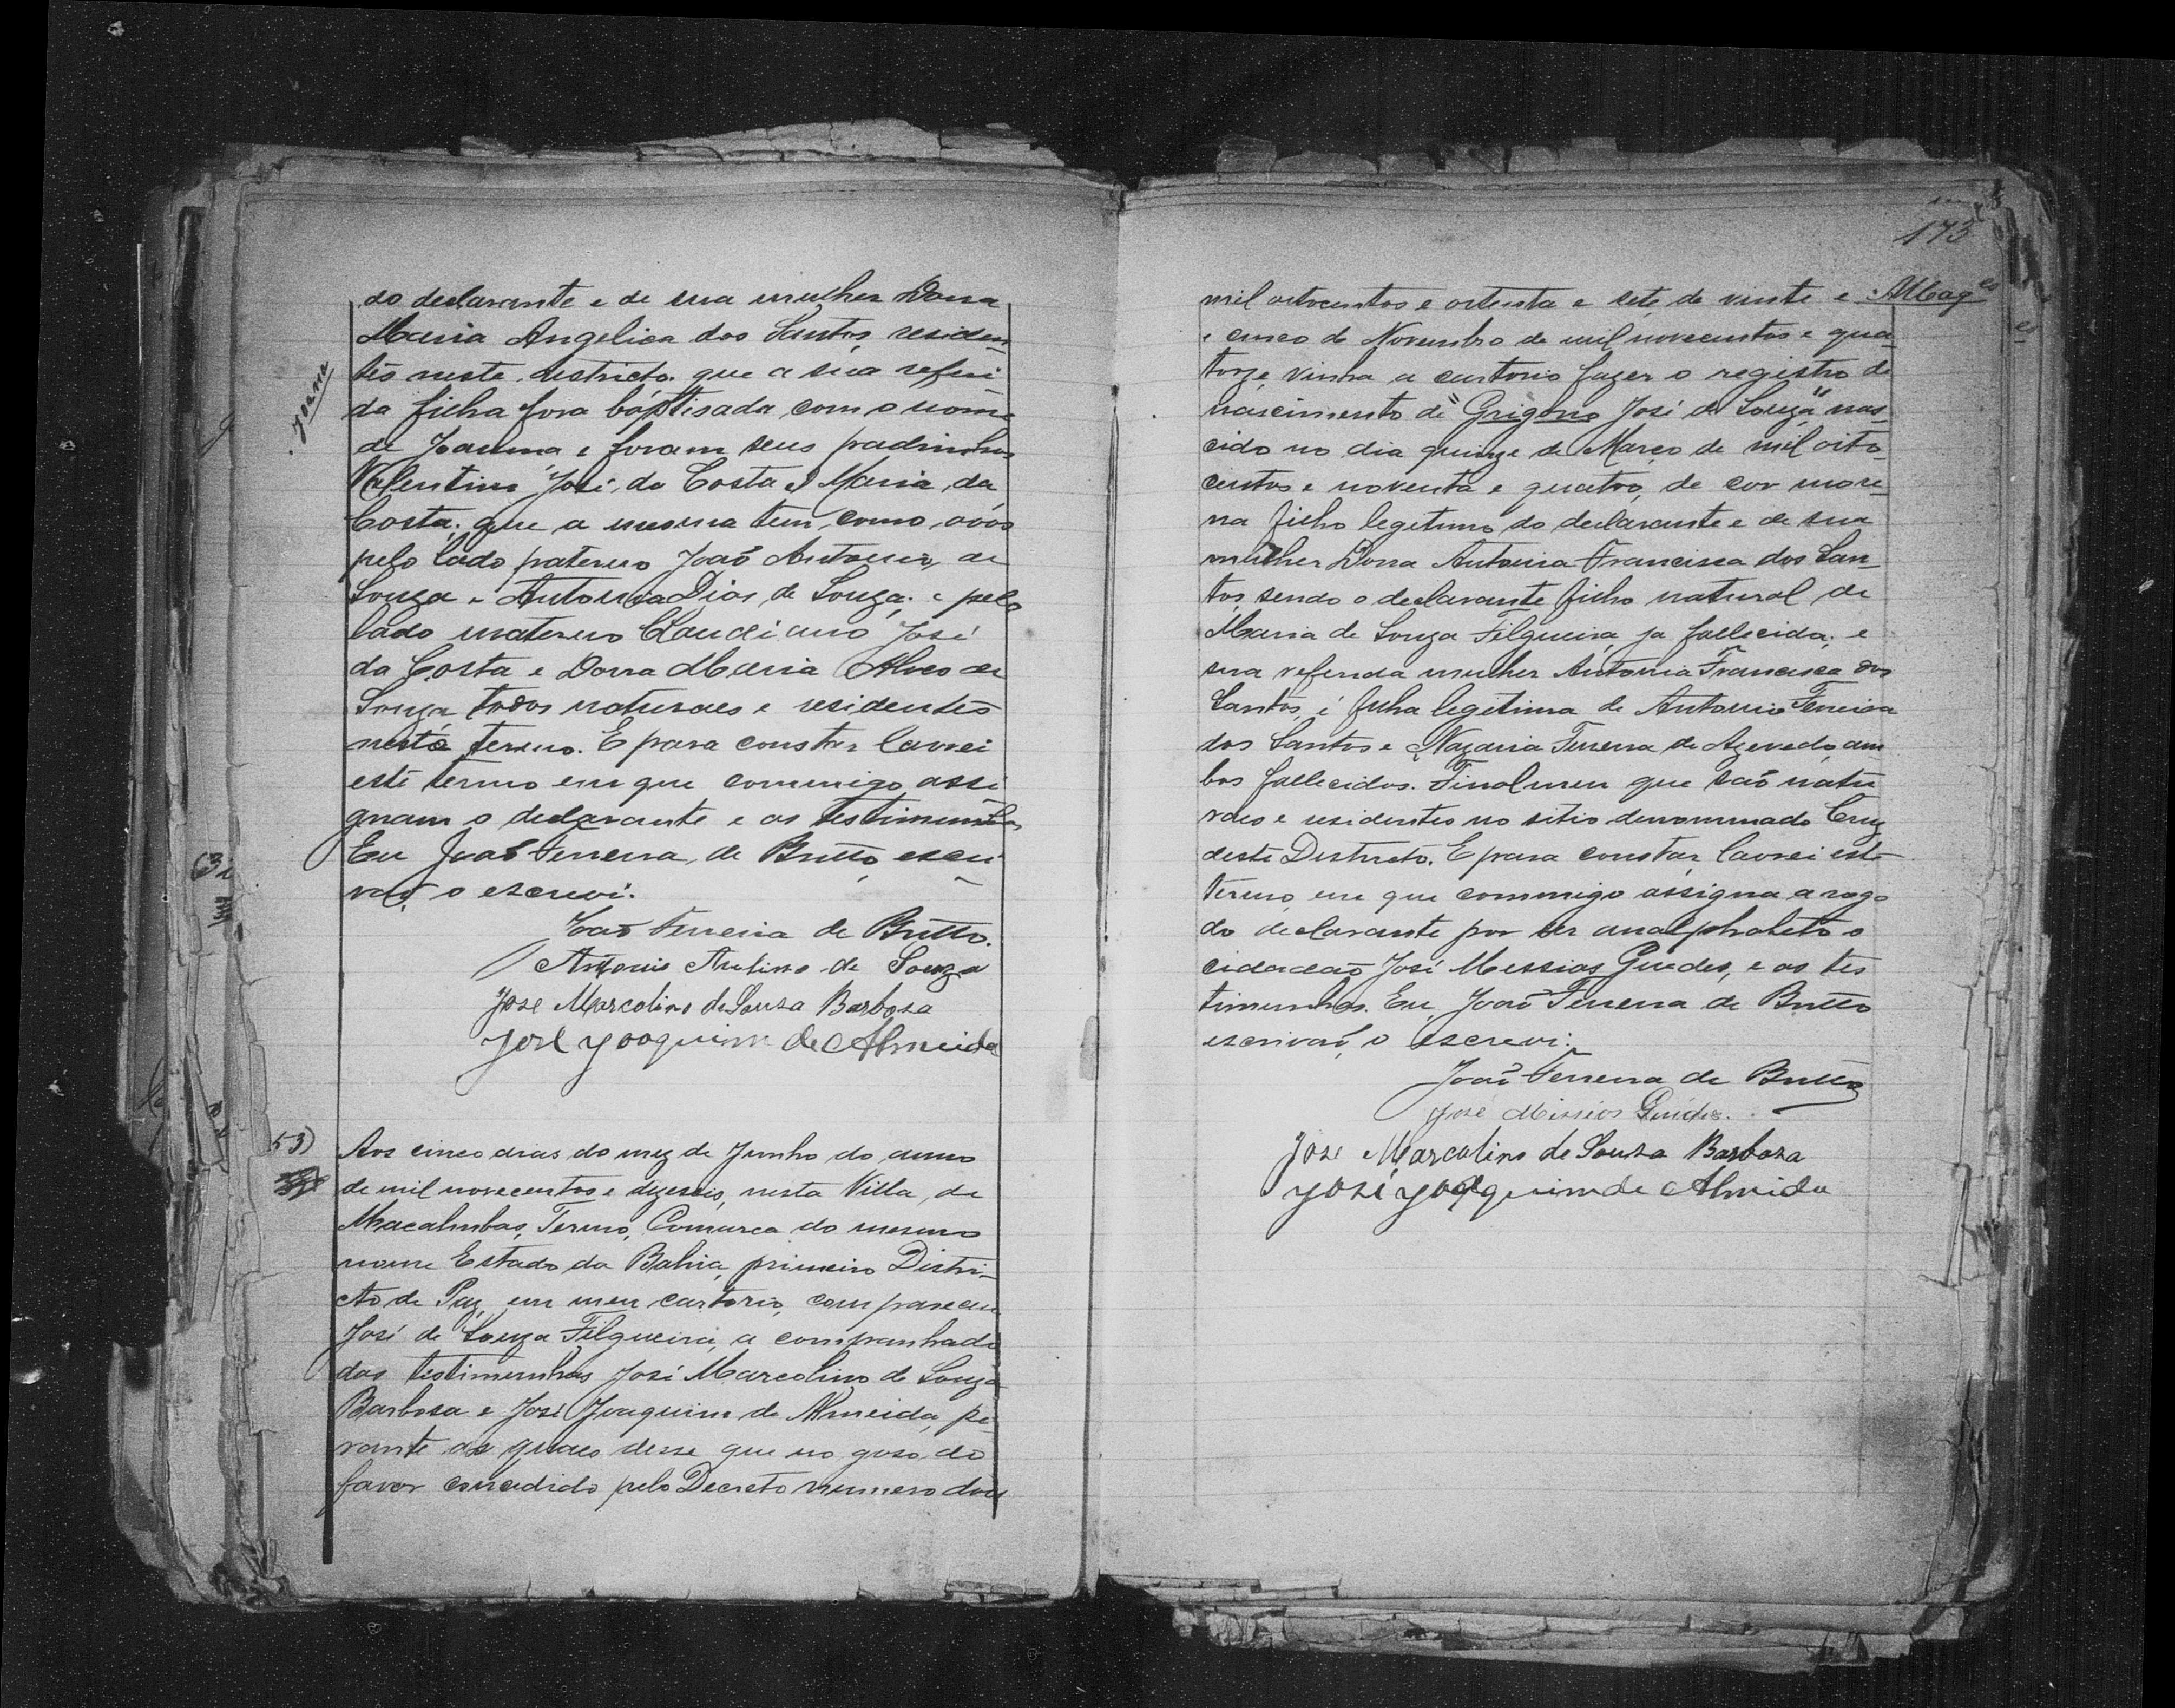 do declarante e de sua mulher Dona
Maria Angelica dos Santos, residen-
tes neste districto. que a sua referi
da filha fora baptisada, com o nome
de Joanna e foram seus padrinhos
Valentino José da Costa e Maria da
Costa; que a mesma tem, como, avós
pelo lado paterno João Antonio de
Souza e Antonia Dias de Souza; e pelo
lado materno Claudiano José
da Costa e Dona Maria Alves de
Souza, todos naturaes e residentes
neste termo. E para constar lavrei
este termo em que commigo assi
gnam o declarante e as testimunhas
Eu João Ferreira, de Britto, escri
vão, o escrevi.
João Ferreira de Britto.
Antonio de Souza
Jose Marcolino de Souza Barbosa
José Joaquim de Almeida
53)
Aos cinco dias do mez de Junho do anno
de mil novecentos e dezeseis, nesta Villa, de
Macahubas, Termo, Comarca do mesmo
nome Estado da Bahia, primeiro Distri-
cto de Paz, em meu cartorio, compareceu
José de Souza Filgueira, a companhado
das testimunhas José Marcolino de Souza
Barbosa e José Joaquim de Almeida, pe
rante as quaes disse que no goso do
favor concedido pelo Decreto numero dois
173
mil oitocentos e oitenta e sete, de vinte e
e cinco de Novembro de mil novecentos e qua-
torze, vinha a cartorio fazer o registro de
nascimento de "Grigorio José de Souza" nas-
cido no dia quinze de Março de mil oito-
centos e noventa e quatro, de cor more-
na filho legitimo do declarante e de sua
mulher Dona Antonia Francisca dos San-
tos, sendo o declarante filho natural de
Maria de Souza Filgueira, ja fallecida; e
sua referida mulher Antonia Francisca dos
Santos, é filha legitima de Antonio Ferreira
dos Santos e Nazaria Ferreira de Azevedo, am
bos fallecidos. Finalmen que são natu
raes e residentes no sitio denominado Cruz
deste Districto. E para constar, lavrei este
termo, em que commigo assigna a rogo
do declarante por ser analphabeto o
cidadão José Messias Guedes, e as tes
timunhas. Eu, João Ferreira de Britto
escrivão, o escrevi.
João Ferreira de Britto
José Missias Guides.
Jose Marcolino de Souza Barbosa
José Joaquim de Almeida